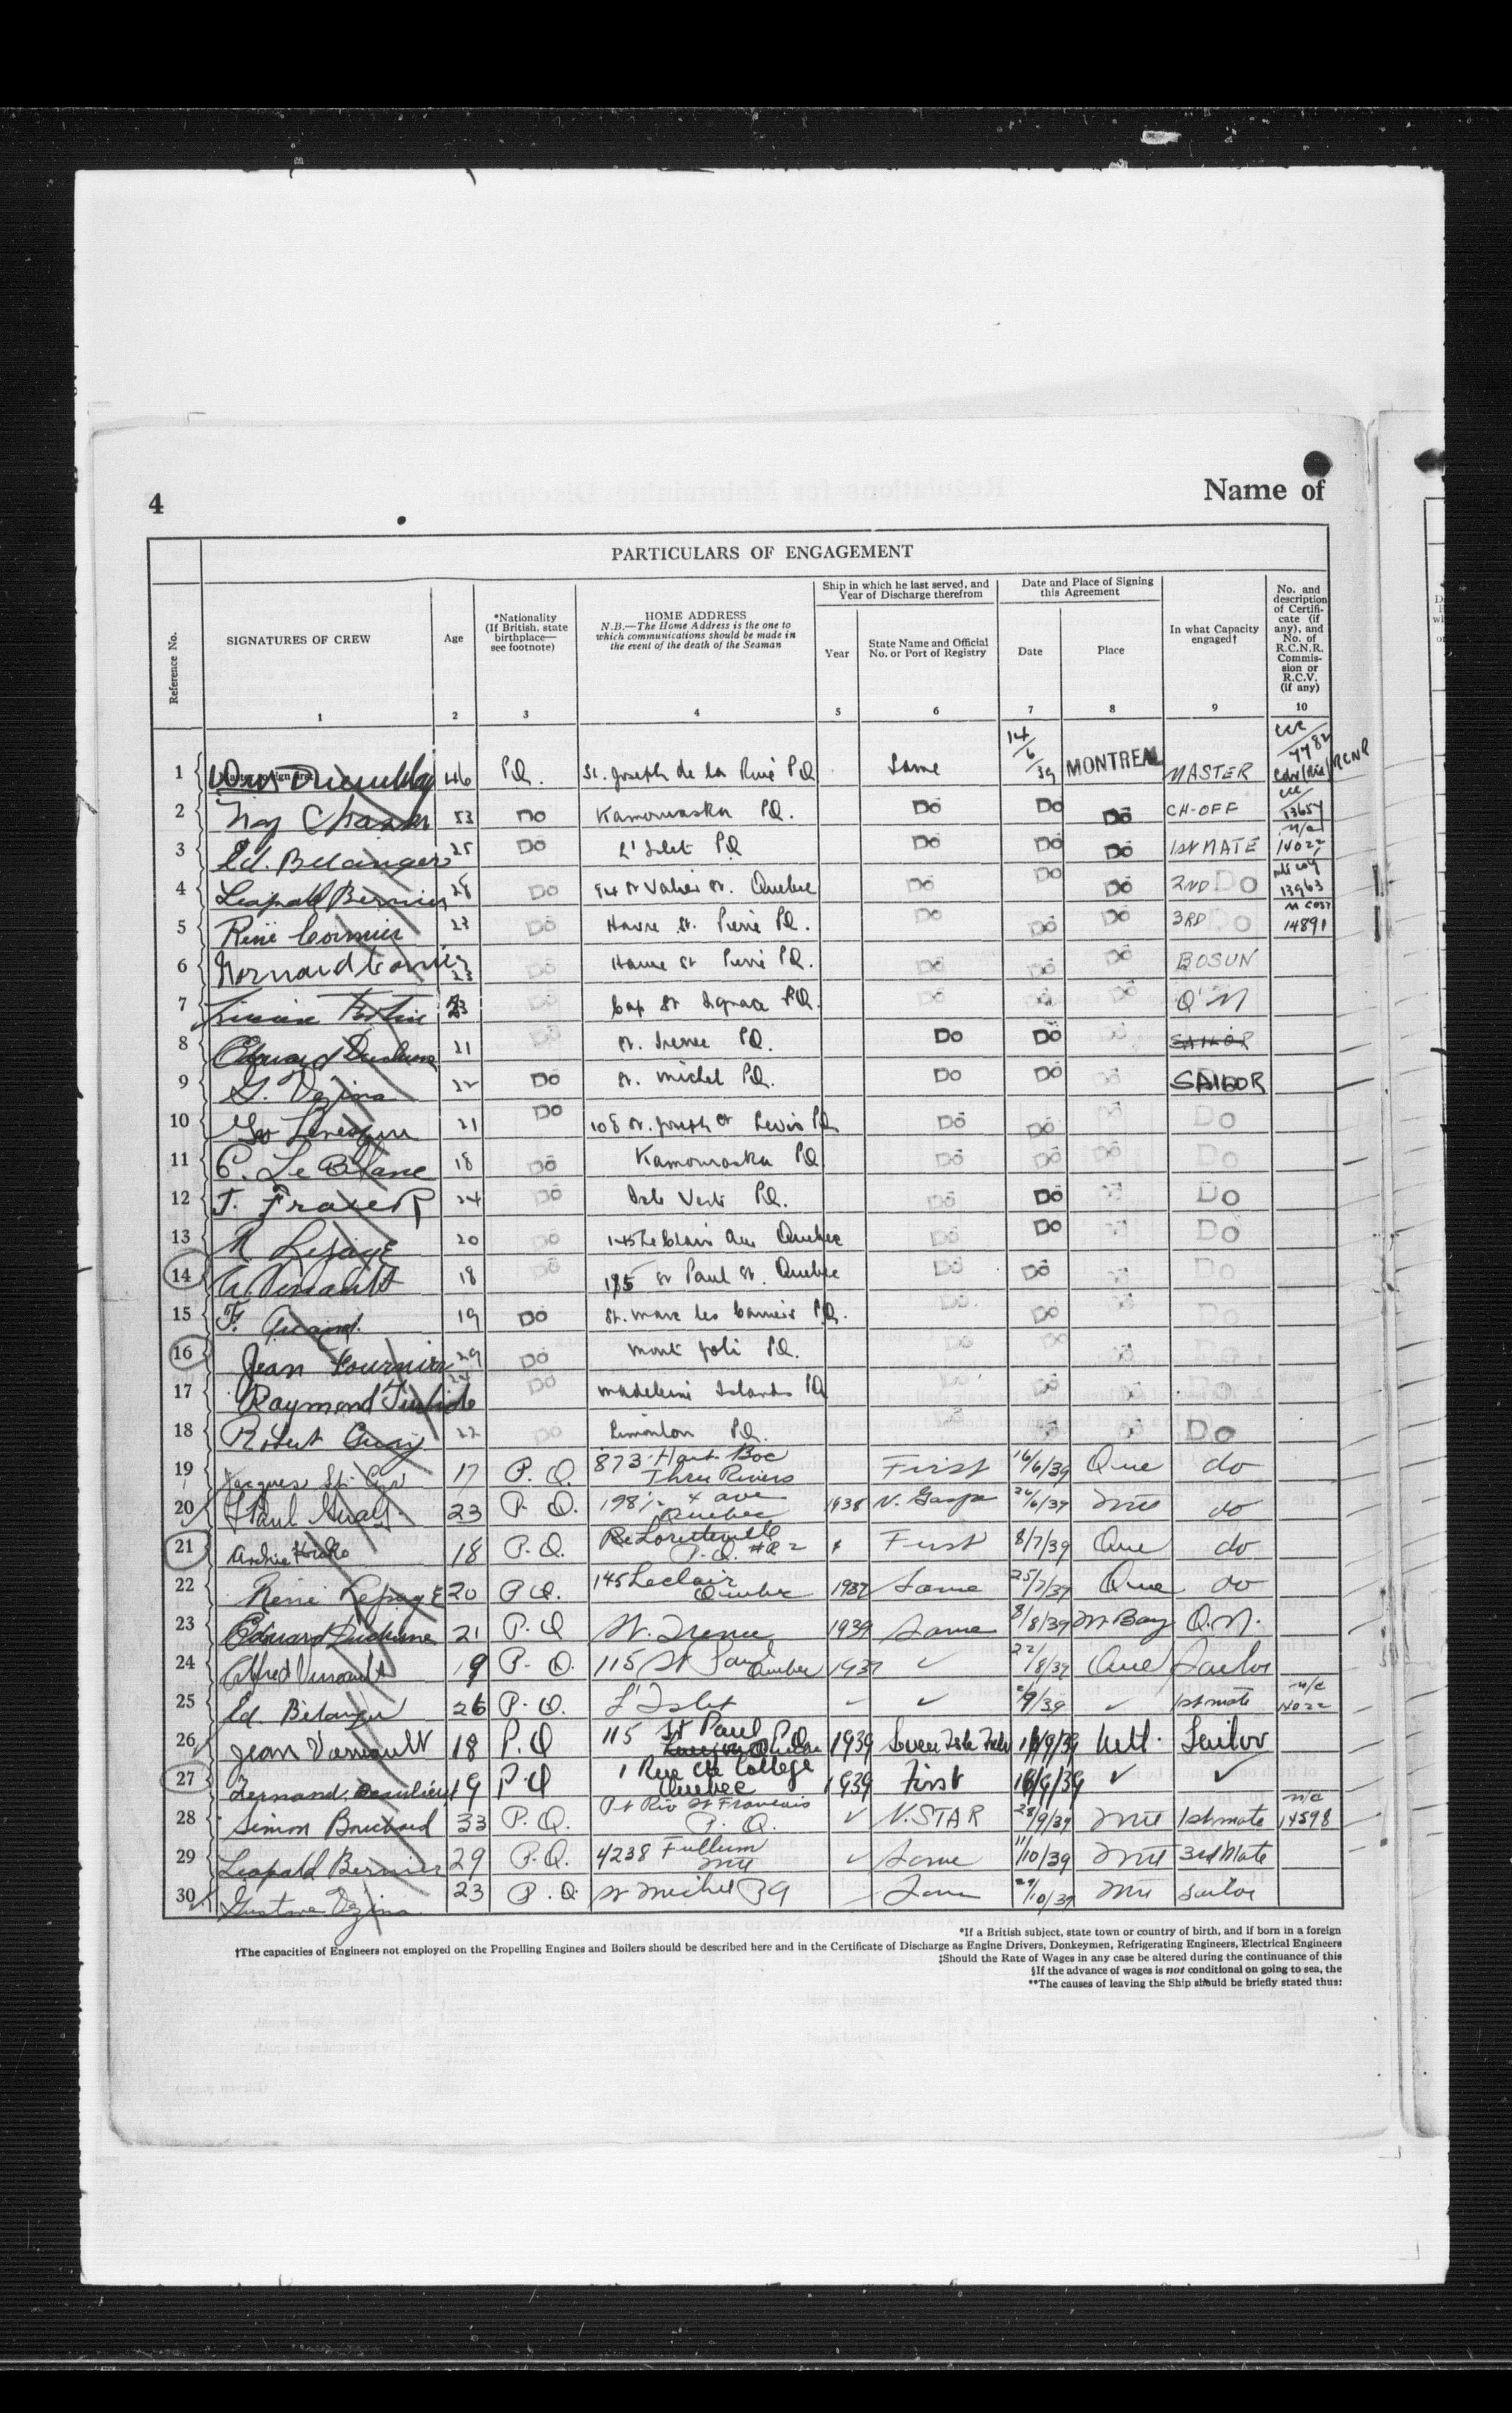 4
Name of
PARTICULARS OF ENGAGEMENT
Reference No.
SIGNATURES OF CREW
Age
*Nationality
(If British, state
birthplace—
see footnote)
HOME ADDRESS
N.B.—The Home Address is the one to
which communications should be made in
the event of the death of the Seaman
Ship in which he last served, and
Year of Discharge therefrom
Year
State Name and Official
No. or Port of Registry
Date and Place of Signing
this Agreement
Date
Place
In what Capacity
engaged†
No. and
description
of Certifi-
cate (if
any), and
No. of
R.C.N.R.
Commis-
sion or
R.C.V.
(if any)
1 2 3 4 5 6 7 8 9 10
1 46 P.Q. St. Joseph de la P.Q Same 14/6/39 MONTREAL MASTER 4782 RCNR
2 53 DO Kamouraska P.Q. DO DO DO CH-OFF 13654
3 Ed. Belanger 25 DO L'Islet P.Q DO DO DO 1st MATE 14022
4 Leopold Bernier 28 DO 94 St Valier St. Quebec DO DO DO 2ND DO 13963
5 René Cormier 23 DO Havre St. Pierre P.Q. DO DO DO 3RD DO 14891
6 23 DO Havre St Pierre P.Q. DO DO DO BOSUN
7 23 DO Cap St Ignace P.Q. DO DO DO Q'M
8 Edouard Duchesne 21 DO St. Irenee P.Q. DO DO DO SAILOR
9 G. Vezina 22 DO St. Michel P.Q. DO DO DO SAILOR
10 Geo Levesque 21 DO 108 St. Joseph St Levis P.Q DO DO DO DO
11 P. LeBlanc 18 DO Kamouraska P.Q DO DO DO DO
12 J. Fraser 24 DO Isle Verte P.Q. DO DO DO DO
13 R Lepage 20 DO 145 Leclair Ave Quebec DO DO DO DO
14 A. Verreault 18 DO 185 St Paul St. Quebec DO DO DO DO
15 F. 19 DO St. Marc les P.Q. DO DO DO DO
16 Jean Fournier 29 DO Mont Joli P.Q. DO DO DO DO
17 Raymond 24 DO Madeleine Islands P.Q DO DO DO DO
18 Robert Guay 22 DO P.Q. DO DO DO
19 Jacques St. Cyr 17 P.Q. 873 Hart Boc
Three Rivers First 16/6/39 Que do
20 Paul Guay 23 P.Q. 198½ 4 ave
Quebec 1938 N. Gaspe 26/6/39 Mtl do
21 18 P.Q. Loretteville
P.Q. #R2 First 8/7/39 Que do
22 René Lepage 20 P.Q. 145 Leclair
Quebec 1939 Same 25/7/39 Que do
23 Edouard Duchesne 21 P.Q St. Irenee 1939 Same 8/8/39 M Bay Q.M.
24 Alfred Verreault 19 P.Q. 115 St Paul
Quebec 1939 ✓ 22/8/39 Que Sailor
25 Ed. Belanger 26 P.Q. L'Islet ✓ ✓ /9/39 ✓ 1st mate 14022
26 Jean Verreault 18 P.Q 115 St Paul P.Q 1939 Seven Isle 16/9/39 Mtl. Sailor
27 Fernand Beaulieu 19 P.Q 1 Rue College
Quebec 1939 First 16/9/39 ✓ ✓
28 Simon Bouchard 33 P.Q. Pt Riv St Francois
P.Q. ✓ N.STAR 28/9/39 Mtl 1st mate 14598
29 Leopold Bernier 29 P.Q. 4238 Fullum
Mtl ✓ Same 11/10/39 Mtl 3rd Mate
30 Gustave Vezina 23 P.Q St Michel P.Q Same 29/10/39 Mtl Sailor
*If a British subject, state town or country of birth, and if born in a foreign
†The capacities of Engineers not employed on the Propelling Engines and Boilers should be described here and in the Certificate of Discharge as Engine Drivers, Donkeymen, Refrigerating Engineers, Electrical Engineers
‡Should the Rate of Wages in any case be altered during the continuance of this
§If the advance of wages is not conditional on going to sea, the
**The causes of leaving the Ship should be briefly stated thus: